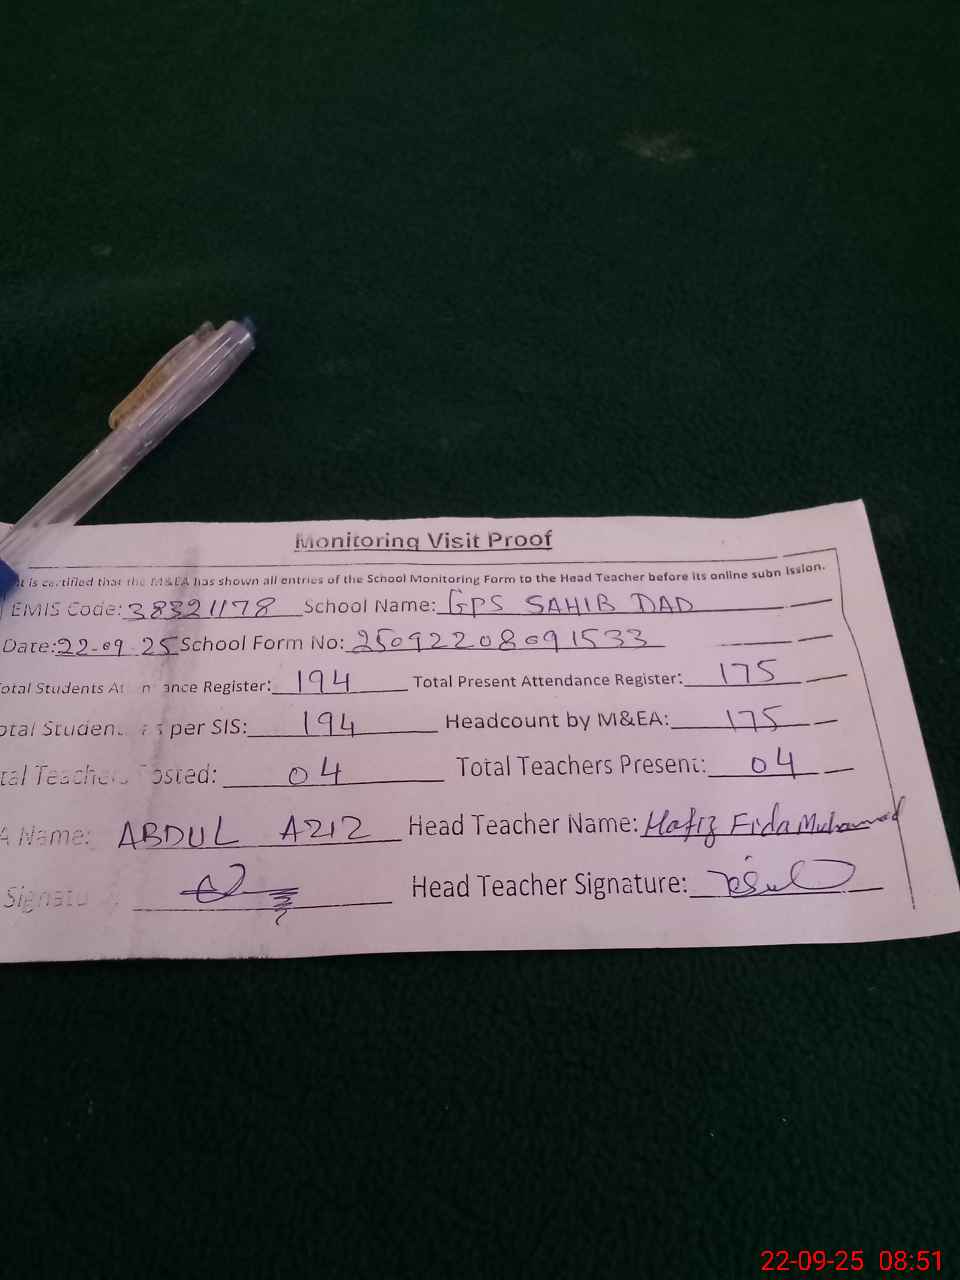 Monitoring Visit Proof
It is certified that the M&EA has shown all entries of the School Monitoring Form to the Head Teacher before its online subn ission.
EMIS Code: 38321178 School Name: GPS SAHIB DAD
Date: 22-09-25 School Form No: 25092208091533
otal Students At n ance Register: 194 Total Present Attendance Register: 175
otal Studen as per SIS: 194 Headcount by M&EA: 175
tal Teachers Posted: 04 Total Teachers Present: 04
A Name: ABDUL AZIZ Head Teacher Name: Hafiz Fida Muhammad
Signatu Head Teacher Signature:
22-09-25 08:51